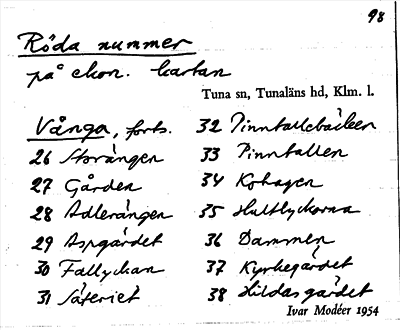 98
Röda nummer
på ekon. kartan
Tuna sn, Tunaläns hd, Klm. l.
Vånga, forts.
26 Storängen
27 Gården
28 Adlerängen
29 Aspgärdet
30 Fallyckan
31 Säteriet
32 Pinntallsbacken
33 Pinntallen
34 Kohagen
35 Hultlyckorna
36 Dammen
37 Kyrkegärdet
38 Hildasgärdet
Ivar Modéer 1954